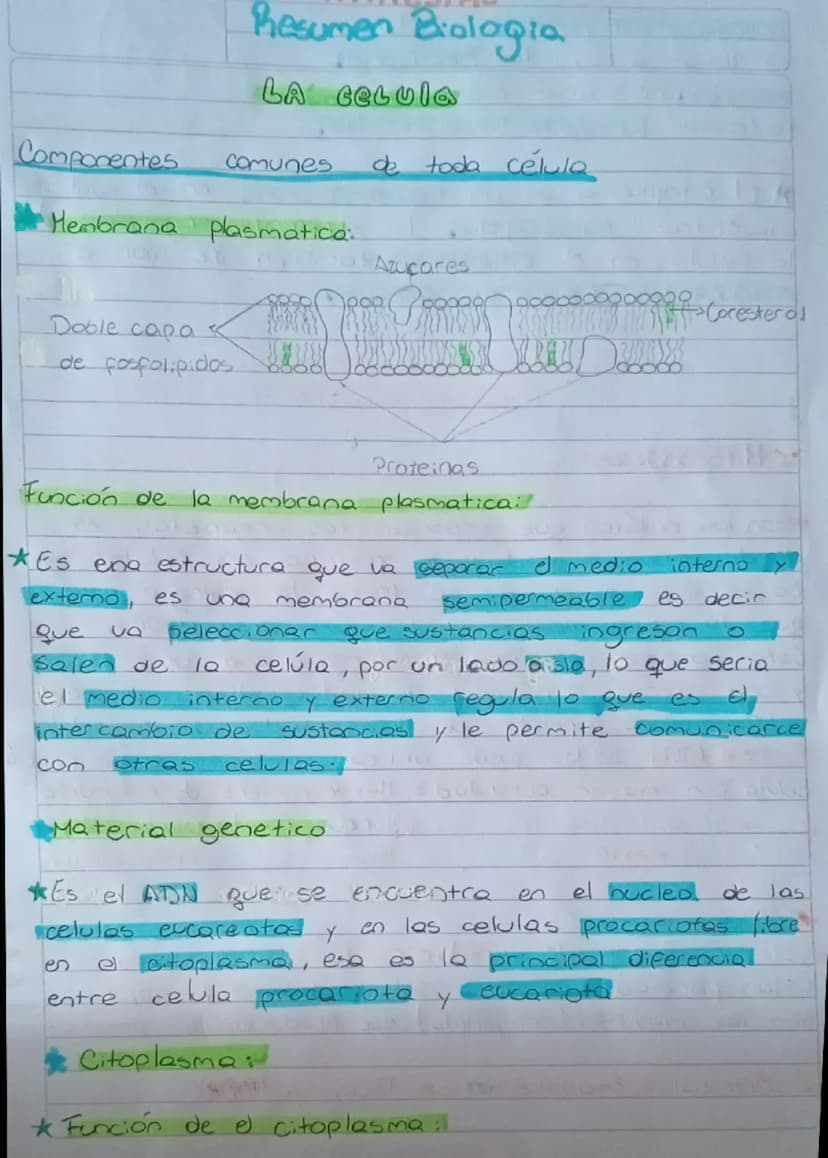 Resumen Biologia
LA CELULA
Componentes comunes de toda célula
Membrana plasmatica:
Azucares
Doble capa
de fosfolipidos
Coresterol
Proteinas
Función de la membrana plasmatica:
Es ena estructura que va separar el medio interno y
externo, es una membrana semipermeable es decir
que va seleccionar que sustancias ingreson o
salen de la celúla, por un lado aisla, lo que seria
el medio interno y externo regula lo que es el
intercambio de sustancias y le permite comunicarce
con otras celulas.
Material genetico
Es el ADN que se encuentra en el nucleo de las
celulas eucareotas y en las celulas procariotas libre
en el citoplasma, esa es la principal diferencia
entre celula procariota y eucariota
Citoplasma:
Función de el citoplasma: